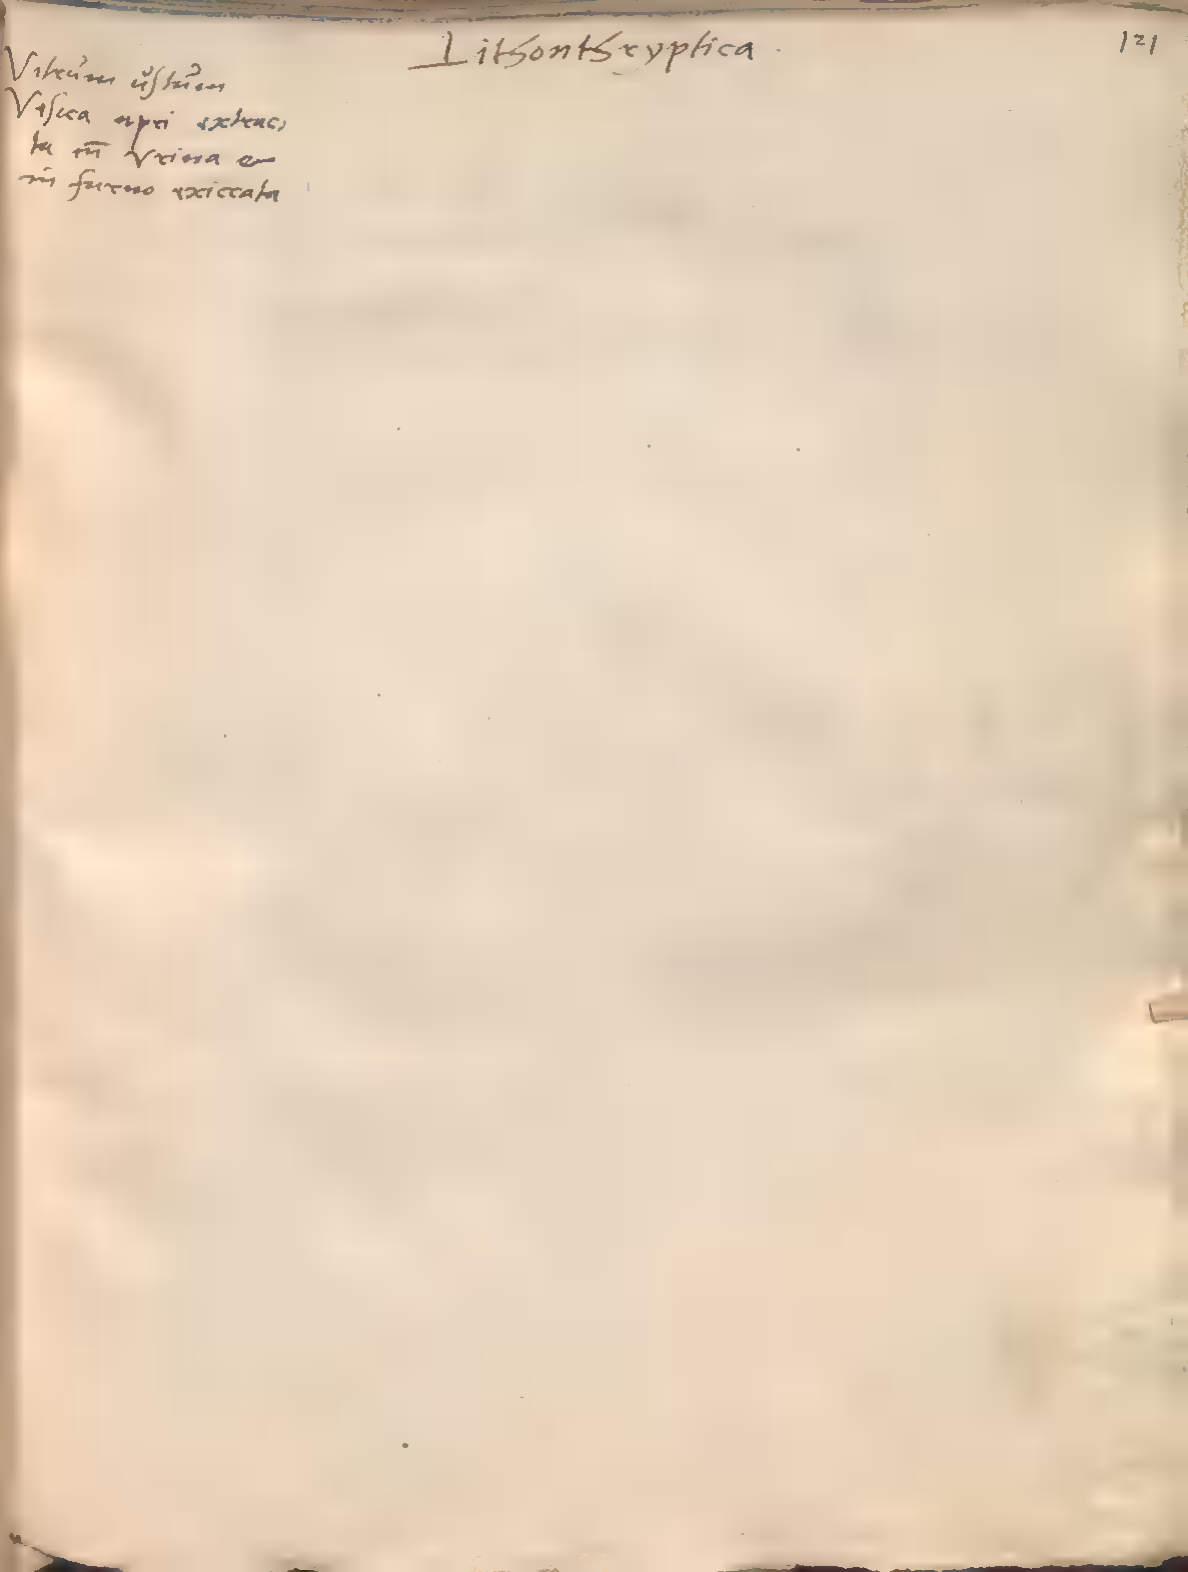 Lithonthryptica 121
Vitrum ustum
Vesica apri extrac,
ta cū Vrina et
in furno exiccata